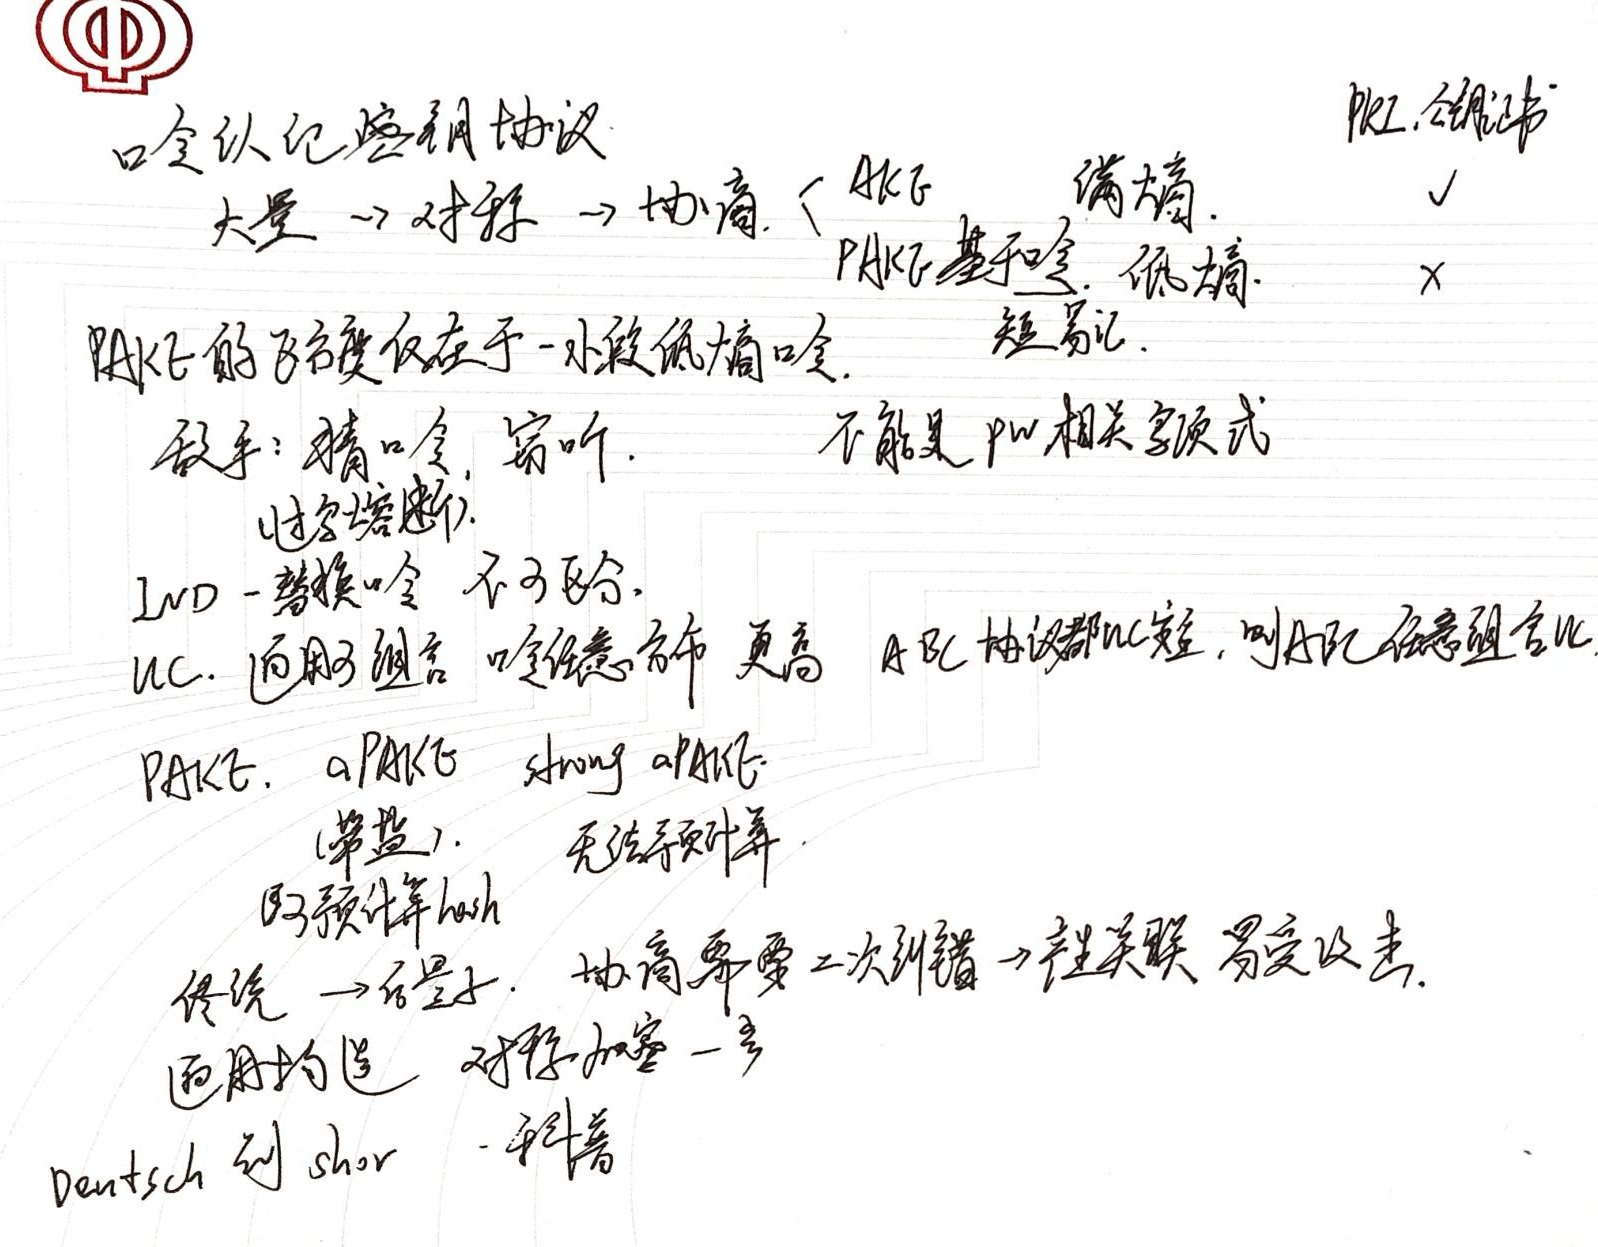 口令认证密钥协议
PKI.公钥证书
大量 → 对称 → 协商. < AKE 满熵. ✓
PAKE 基于口令. 低熵. ×
短易记.
PAKE的 仅在于一小段低熵口令.
敌手: 猜口令, 窃听. 不能是 pw 相关 式
IND - 替换口令 不可区分.
UC. 通用可组合 口令任意分布 更高 ABC 协议都UC安全, 则ABC任意组合UC.
PAKE. aPAKE strong aPAKE.
(带盐). 无法预计算.
可预计算hash
传统 → 后量子. 协商需要二次纠错→产生关联 易受攻击.
通用构造 对称加密一
Deutsch 到 shor - 科普